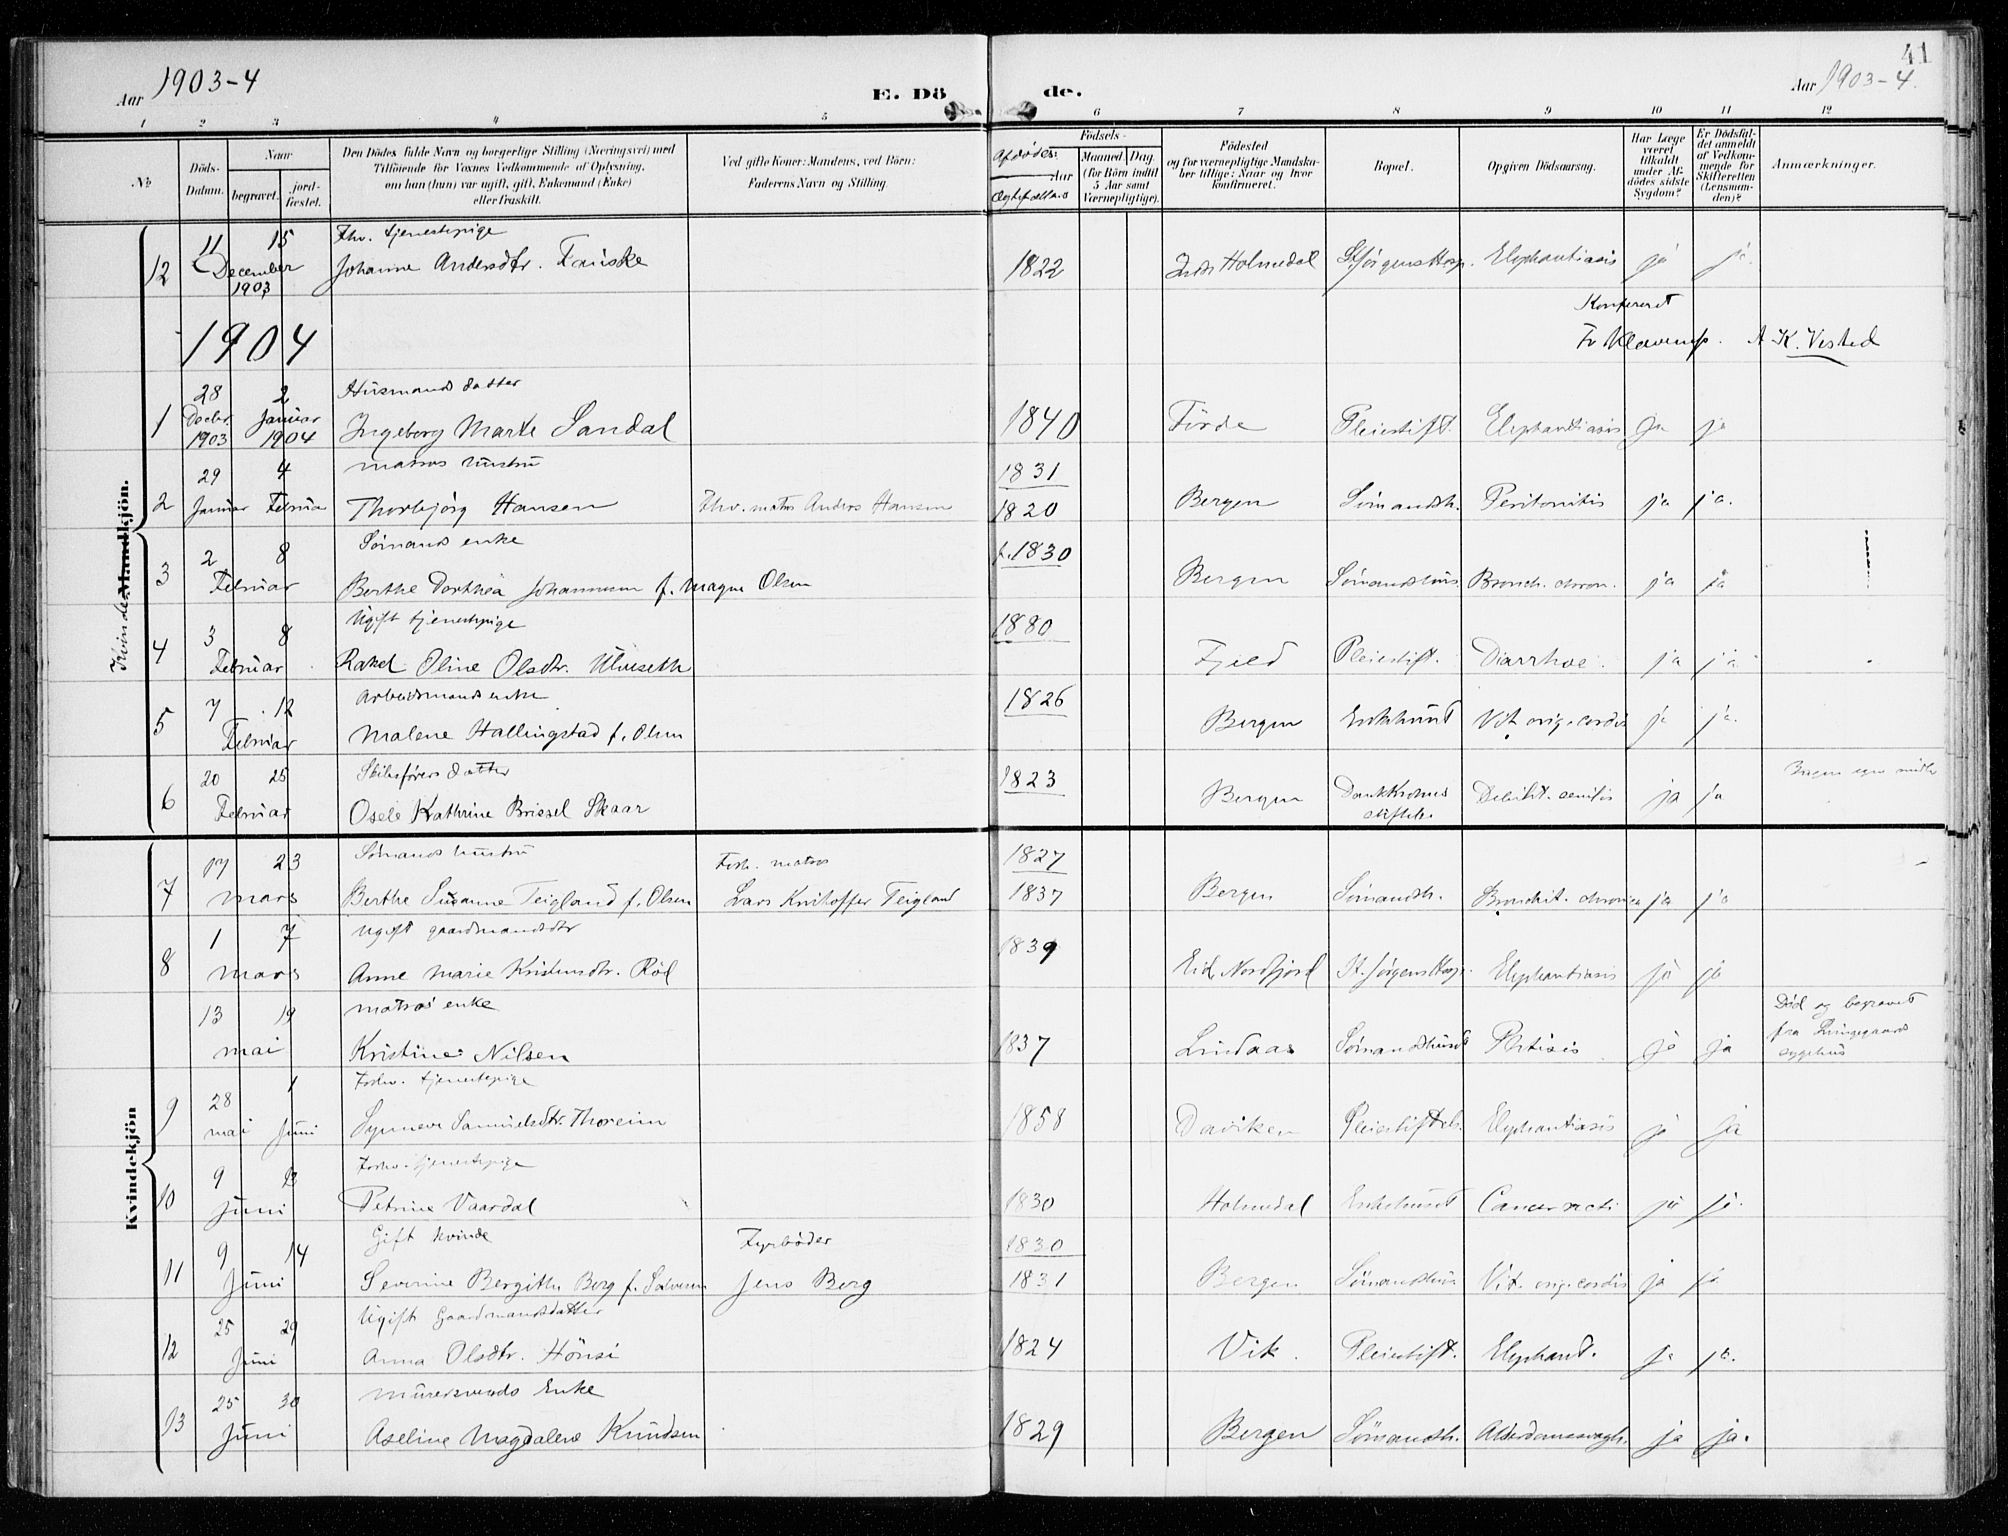 41
Aar 1903-4
E. Dö
de.
Aar 1903-4.
1 2 3 4 5 6 7 8 9 10 11 12
No
Döds-Datum.
Naar
begravet.
jord-fæstet.
Den Dödes fulde Navn og borgerlige Stilling (Næringsvei) med
Tilföiende for Voxnes Vedkommende af Oplysning,
om han (hun) var ugift, gift, Enkemand (Enke)
eller fraskilt.
Ved gifte Koner: Mandens, ved Börn:
Faderens Navn og Stilling.
Afdødes:
Födsels-
Aar
Maaned Dag
(for Börn indtil
5 Aar samt
Værnepligtige).
Födested
og for værnepligtige Mandska-
ber tillige: Naar og hvor
konfirmeret.
Bopæl.
Opgiven Dödsaarsag.
Har Læge
været
tilkaldt
under Af-
dödes sidste
Sygdom?
Er Dödsfal-
det anmeldt
af Vedkom-
mende for
Skifteretten
(Lensman-
den)?
Anmærkninger.
Kvinde Mandkjön.
12 11 15 December 1903 Fhv. tjenestepige
Johanne Andersdtr. Fauske 1822 Indr Holmedal St Jørgens Hosp. Elephantiasis ja ja.
1904
Konfereret
Fr Klaveness. A. K. Vested
1 28 Decbr. 1903 2 Januar 1904 Husmands datter
Ingeborg Marte Sandal 1840 Förde Pleiestift. Elephantiasis Ja ja
2 29 Januar 4 Februar matros hustru
Thorbjørg Hansen Fhv. matros Anders Hansen 1831 1820 Bergen Sømandsh. Peritonitis ja ja.
3 2 8 Februar Sømands enke
Berthe Dorthea Johannesen f. Magne Olsen f. 1830 Bergen Sømandshus. Bronch. chron. ja ja
4 3 8 Februar Ugift tjenestepige
Rakel Oline Olsdtr. Ulveseth 1880 Fjeld Pleiestift. Diarrhoe. ja ja
5 7 12 Februar Arbeidsmands enke
Malene Hallingstad f. Olsen 1826 Bergen Enkehuset Vit. orig. cordis ja ja.
6 20 25 Februar Skibsførers datter
Osele Kathrine Brissel Skaar 1823 Bergen Dankkrohns stiftels. Debilit. senilis ja ja
Kvindekjön
7 17 23 mars Sømands hustru Forh. matros
Berthe Susanne Teigland f. Olsen Lars Kristoffer Teigland 1827 1837 Bergen Sømandsh. Bronchit. chronica ja ja
8 1 7 mars Ugift gaardmandsdtr
Anne Marie Kristensdtr. Röl 1839 Eid, Nordfjord St. Jørgens Hosp. Elephantiasis ja ja
13 19 mai matros' enke
Kristine Nilsen 1837 Lindaas Sømandshuset Phtisis ja ja
Död og begravet
fra Lungegaards
sygehus
9 28 mai 1 Juni Forhv. tjenestepige
Synneve Samuelsdtr. Thoreim 1858 Daviken Pleiestiftels. Elephantiasis ja ja
10 9 13 Juni Forhv. tjenestepige
Petrine Vaardal 1830 Holmedal Enkehuset Cancer recti ja ja.
11 9 14 Juni Gift kvinde Fyrbøder
Severine Bergithe Berg f. Salvesen Jens Berg 1830 1831 Bergen Sømandshus Vit. orig. cordis ja ja
12 25 29 Juni Ugift Gaardmandsdatter
Anna Olsdtr. Hönsi 1824 Vik. Pleiestift. Elephant. ja ja.
13 25 30 Juni Murersvends Enke
Aseline Magdalene Knudsen 1829 Bergen Sømandsh. Alderdomssvagh. ja ja.